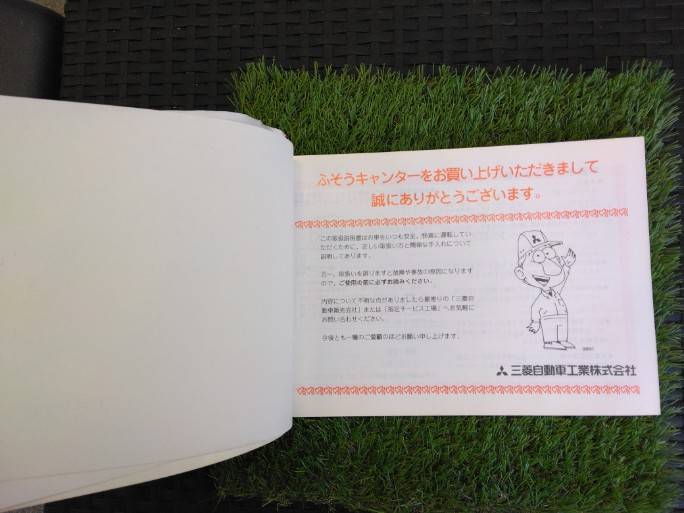 ふそうキャンターをお買い上げいただきまして
誠にありがとうございます。
この取扱説明書はお車をいつも安全、快適に運転してい
ただくために、正しい取扱い方と簡単な手入れについて
説明してあります。
万一、取扱いを誤りますと故障や事故の原因になります
ので、ご使用の前に必ずお読みください。
内容について不明な点がありましたら最寄りの「三菱自
動車販売会社」または「指定サービス工場」へお気軽に
お問い合わせください。
今後とも一層のご愛顧のほどお願い申し上げます。
三菱自動車工業株式会社